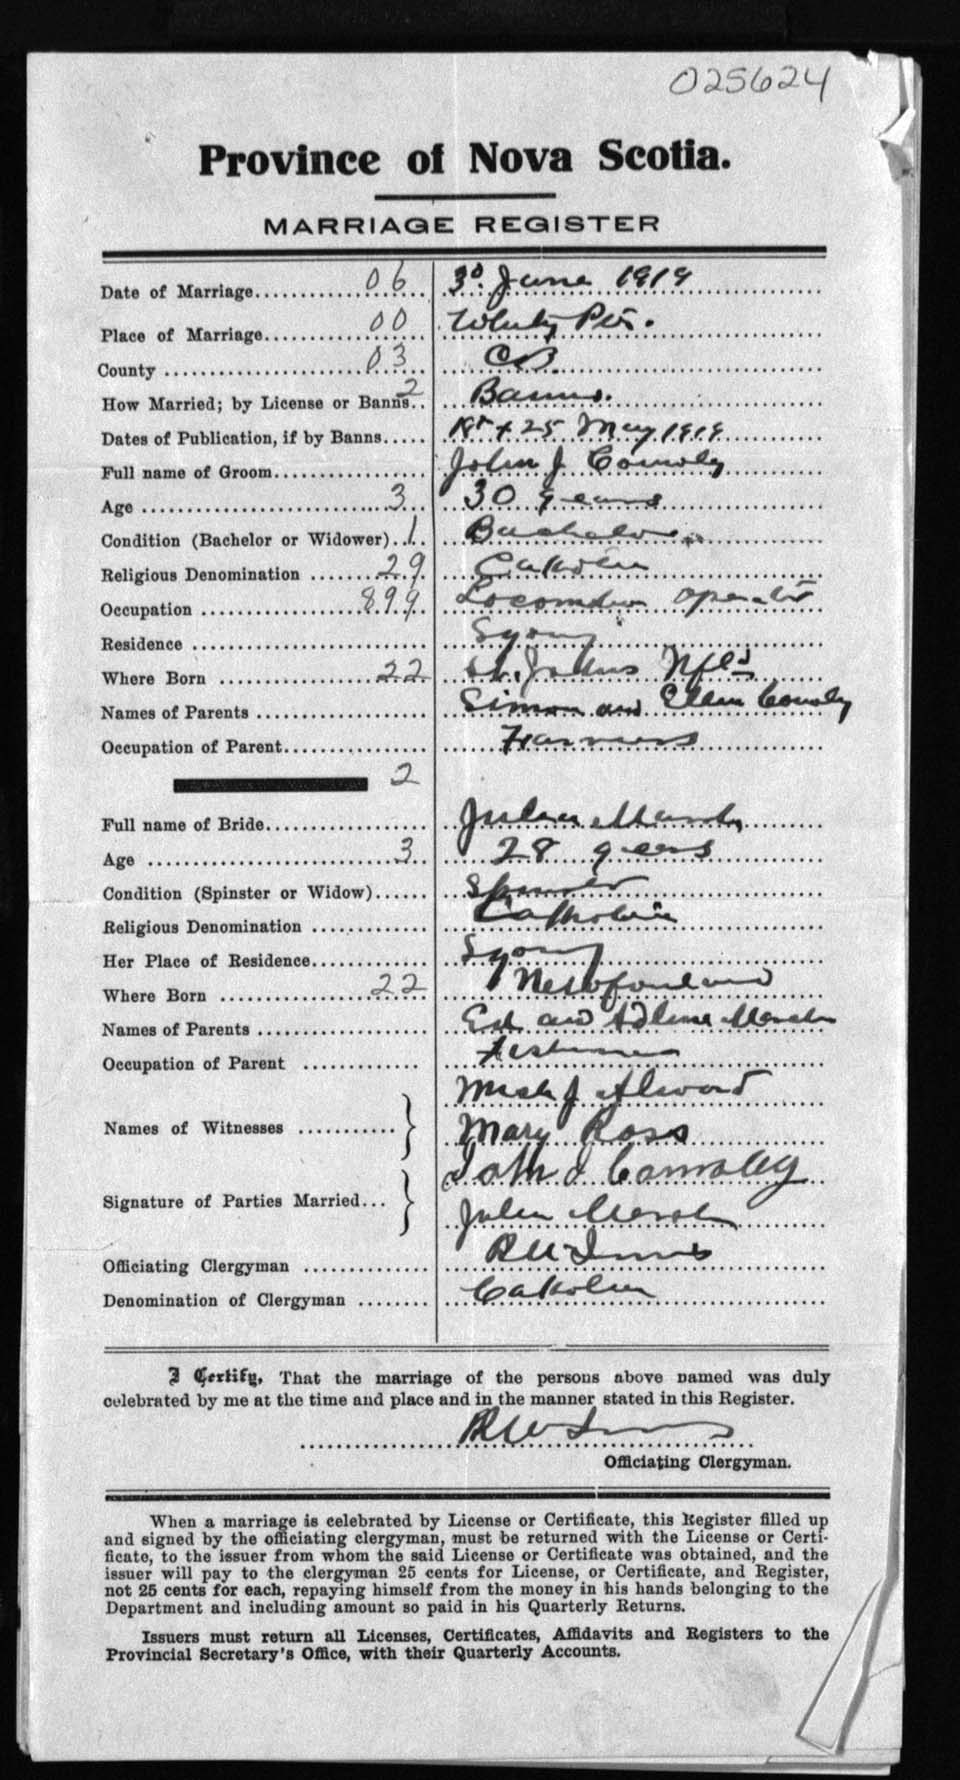 025624
Province of Nova Scotia.
MARRIAGE REGISTER
Date of Marriage 06 3d. June 1919
Place of Marriage 00 Whitney Pier.
County 03 CB.
How Married; by License or Banns 2 Banns.
Dates of Publication, if by Banns 18 + 25 May 1919
Full name of Groom John J Connoly
Age 3 30 years
Condition (Bachelor or Widower) 1 Bachelor
Religious Denomination 29 Catholic
Occupation 899 Locomotive operator
Residence Sydney
Where Born 22 St. Johns Nfld
Names of Parents Simon and Ellen Connoly
Occupation of Parent Farmers
2
Full name of Bride Julia Marsh
Age 3 28 years
Condition (Spinster or Widow) Spinster
Religious Denomination Catholic
Her Place of Residence Sydney
Where Born 22 Newfounland
Names of Parents Ed. and Adline Marsh
Occupation of Parent Fisherman
J
Names of Witnesses Mary Ross
John J Connoley
Signature of Parties Married
Julia Marsh
Officiating Clergyman
Denomination of Clergyman Catholic
I Certify, That the marriage of the persons above named was duly
celebrated by me at the time and place and in the manner stated in this Register.
Officiating Clergyman.
When a marriage is celebrated by License or Certificate, this Register filled up
and signed by the officiating clergyman, must be returned with the License or Certi-
ficate, to the issuer from whom the said License or Certificate was obtained, and the
issuer will pay to the clergyman 25 cents for License, or Certificate, and Register,
not 25 cents for each, repaying himself from the money in his hands belonging to the
Department and including amount so paid in his Quarterly Returns.
Issuers must return all Licenses, Certificates, Affidavits and Registers to the
Provincial Secretary's Office, with their Quarterly Accounts.